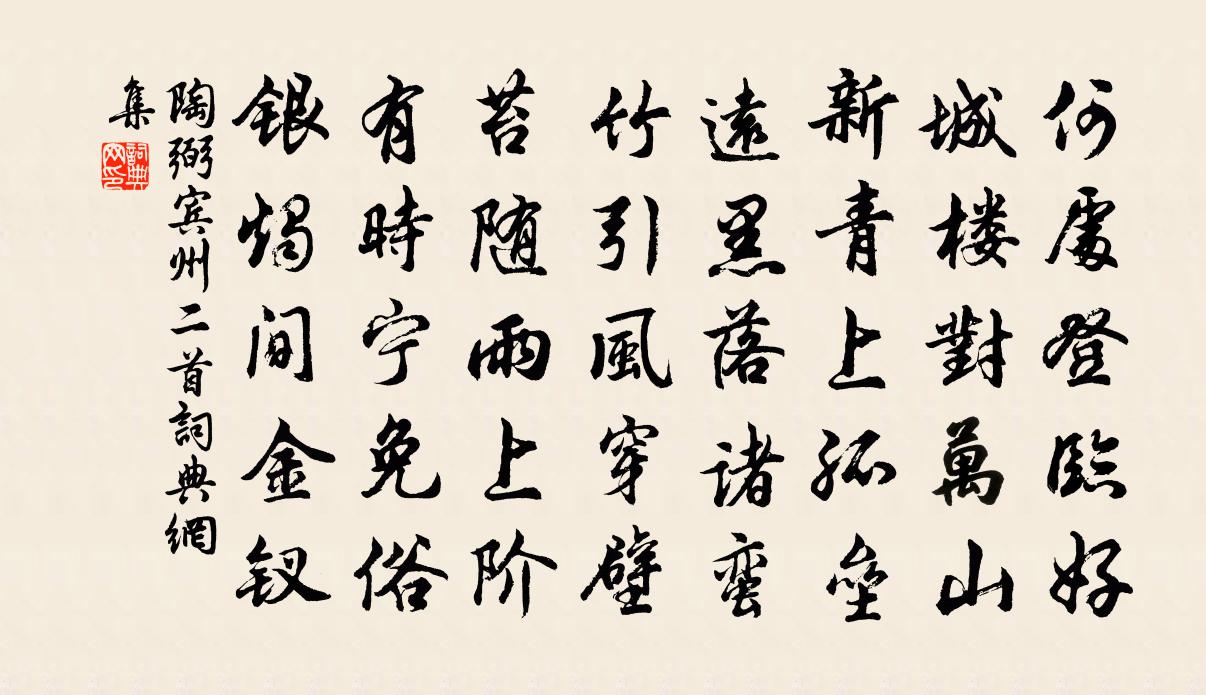 何處登臨好
城楼對萬山
新青上孤壘
遠黑落諸蛮
竹引風穿壁
苔随雨上阶
有時宁免俗
銀燭间金钗
陶弼宾州二首詞典網
集
詞典
网印